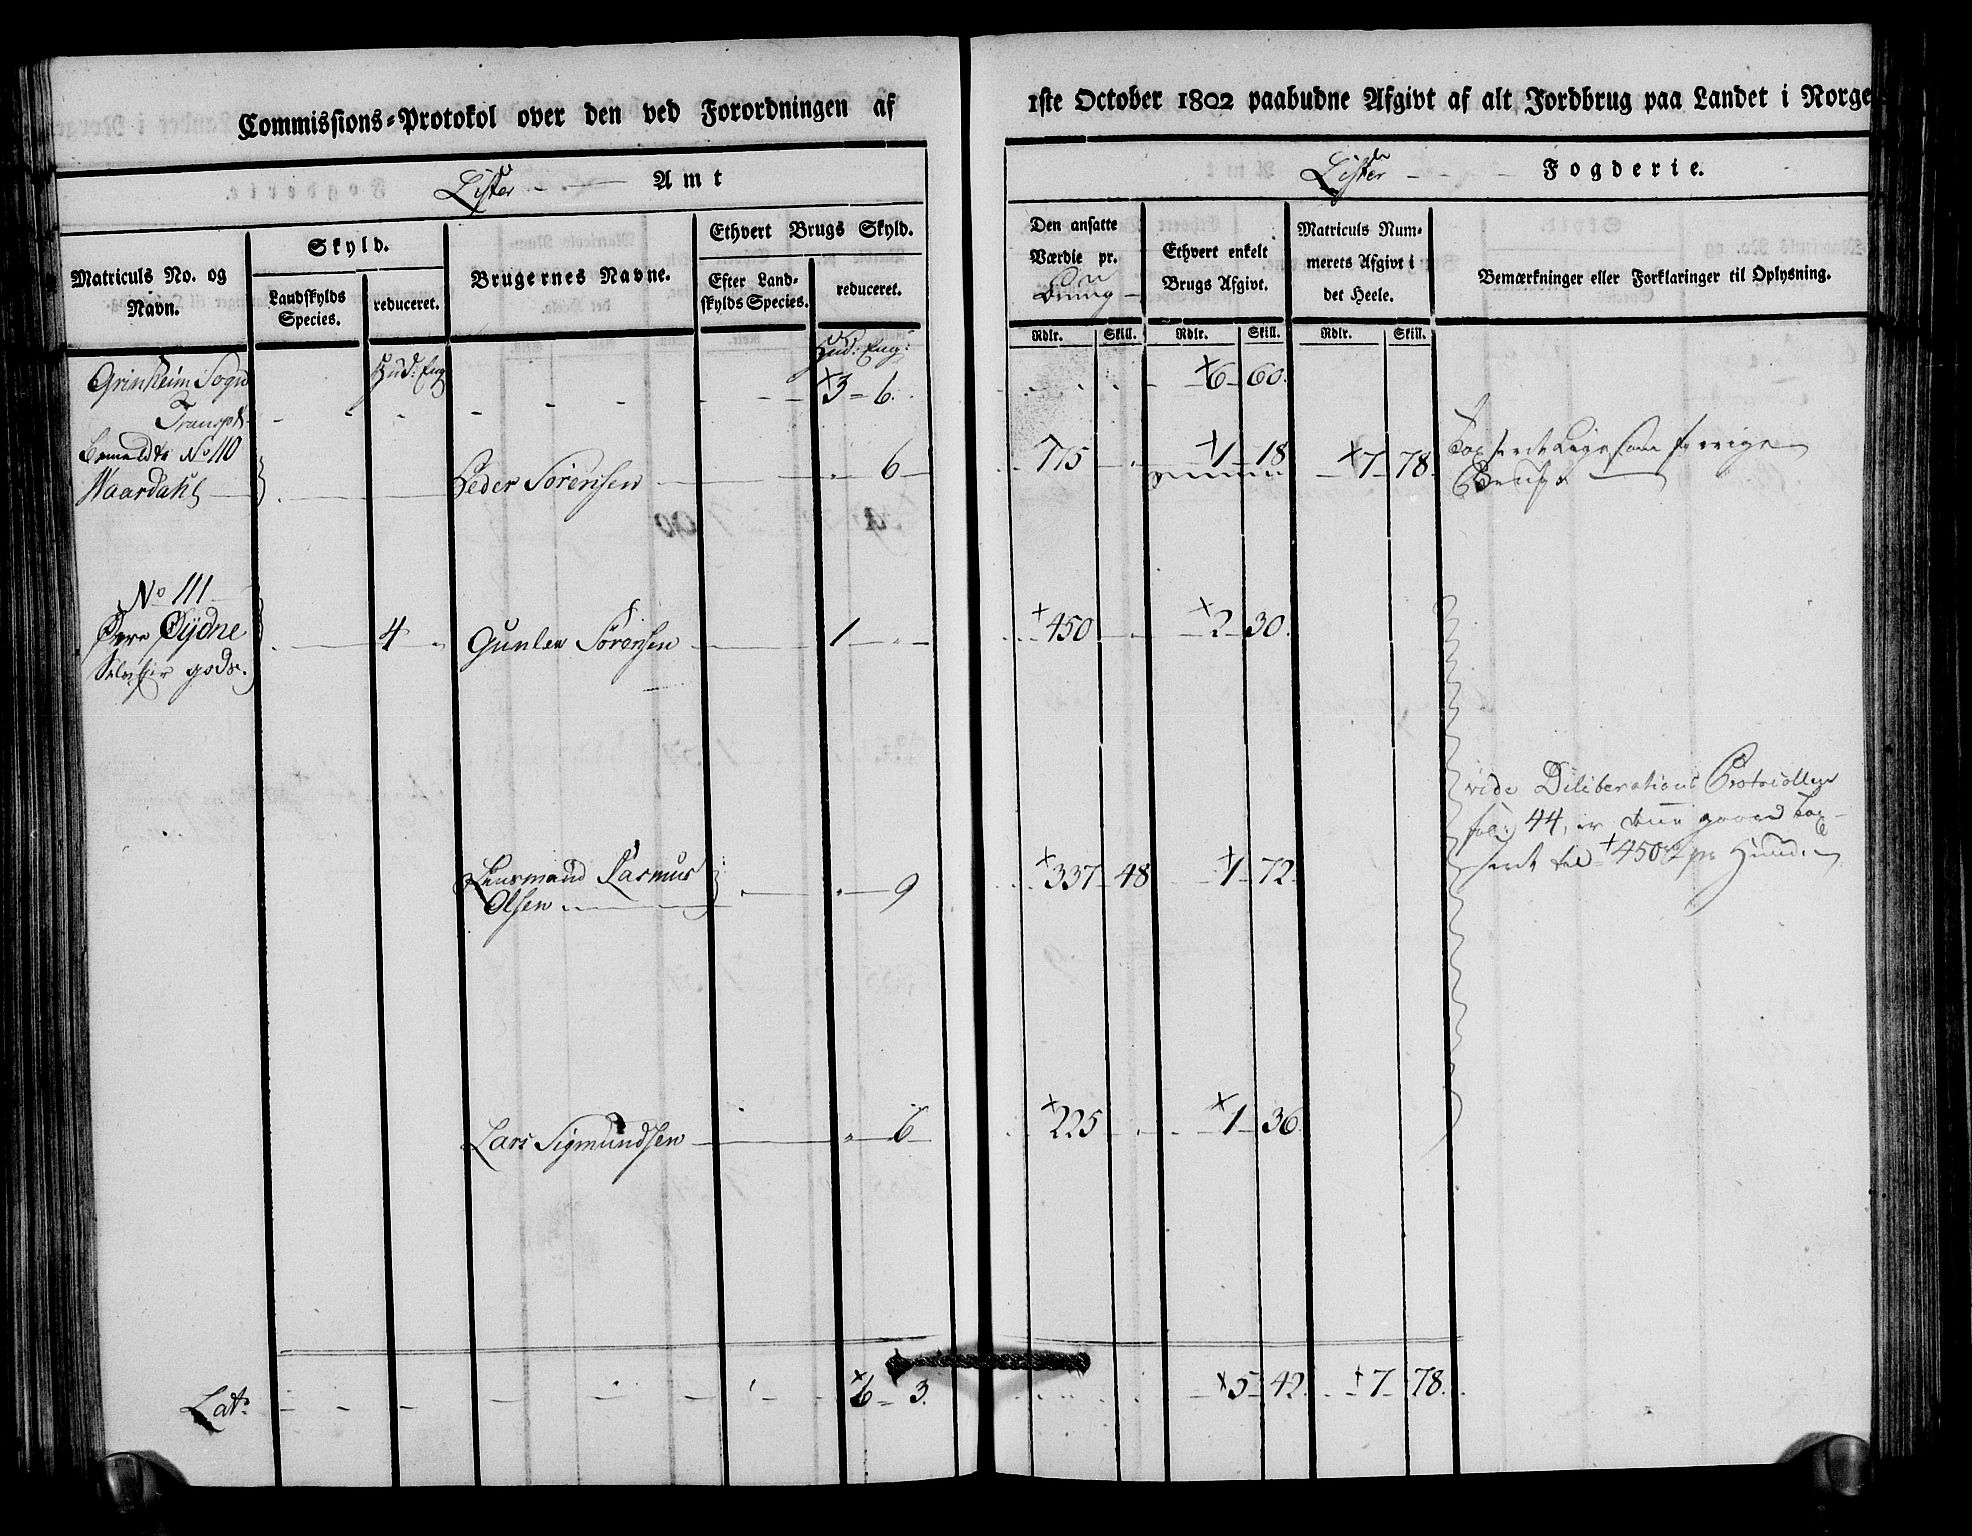 Commissions-Protokol over den ved Forordningen af
Lister Amt
Matriculs No. og Navn.
Skyld.
Landskylds Species.
reduceret.
Brugernes Navne.
Ethvert Brugs Skyld.
Efter Landskylds Species.
reduceret.
Grinheim Sogn
Hud: Eng
Hud: Eng:
Transpt
3 6.
Bemeldte No 110
Haardahl
Peder Sörensen
6
No 111
Øvre Øydne
gods.
4
Gunler Sörensen
1
Lensmand Rasmus
Olsen
9
Lars Sigmundsen
6
Lat:
6 3.
1ste October 1802 paabudne Afgivt af alt Jordbrug paa Landet i Norge
Lister Fogderie.
Den ansatte Værdie pr.
Bruug
Ethvert enkelt Brugs Afgivt.
Matriculs Nummerets Afgivt i det Heele.
Bemærkninger eller Forklaringer til Oplysning.
Rdlr. Skill. Rdlr. Skill. Rdlr. Skill.
6 60.
775 1 18 7 78.
Taxseret Ligesom forrige
Brug.
450 2 30.
vide Deliberations Protocollen
fol: 44, er gaard Tax-
seret til 450 rd pr Hud.
337 48 1 72
225 1 36
5 42. 7 78.